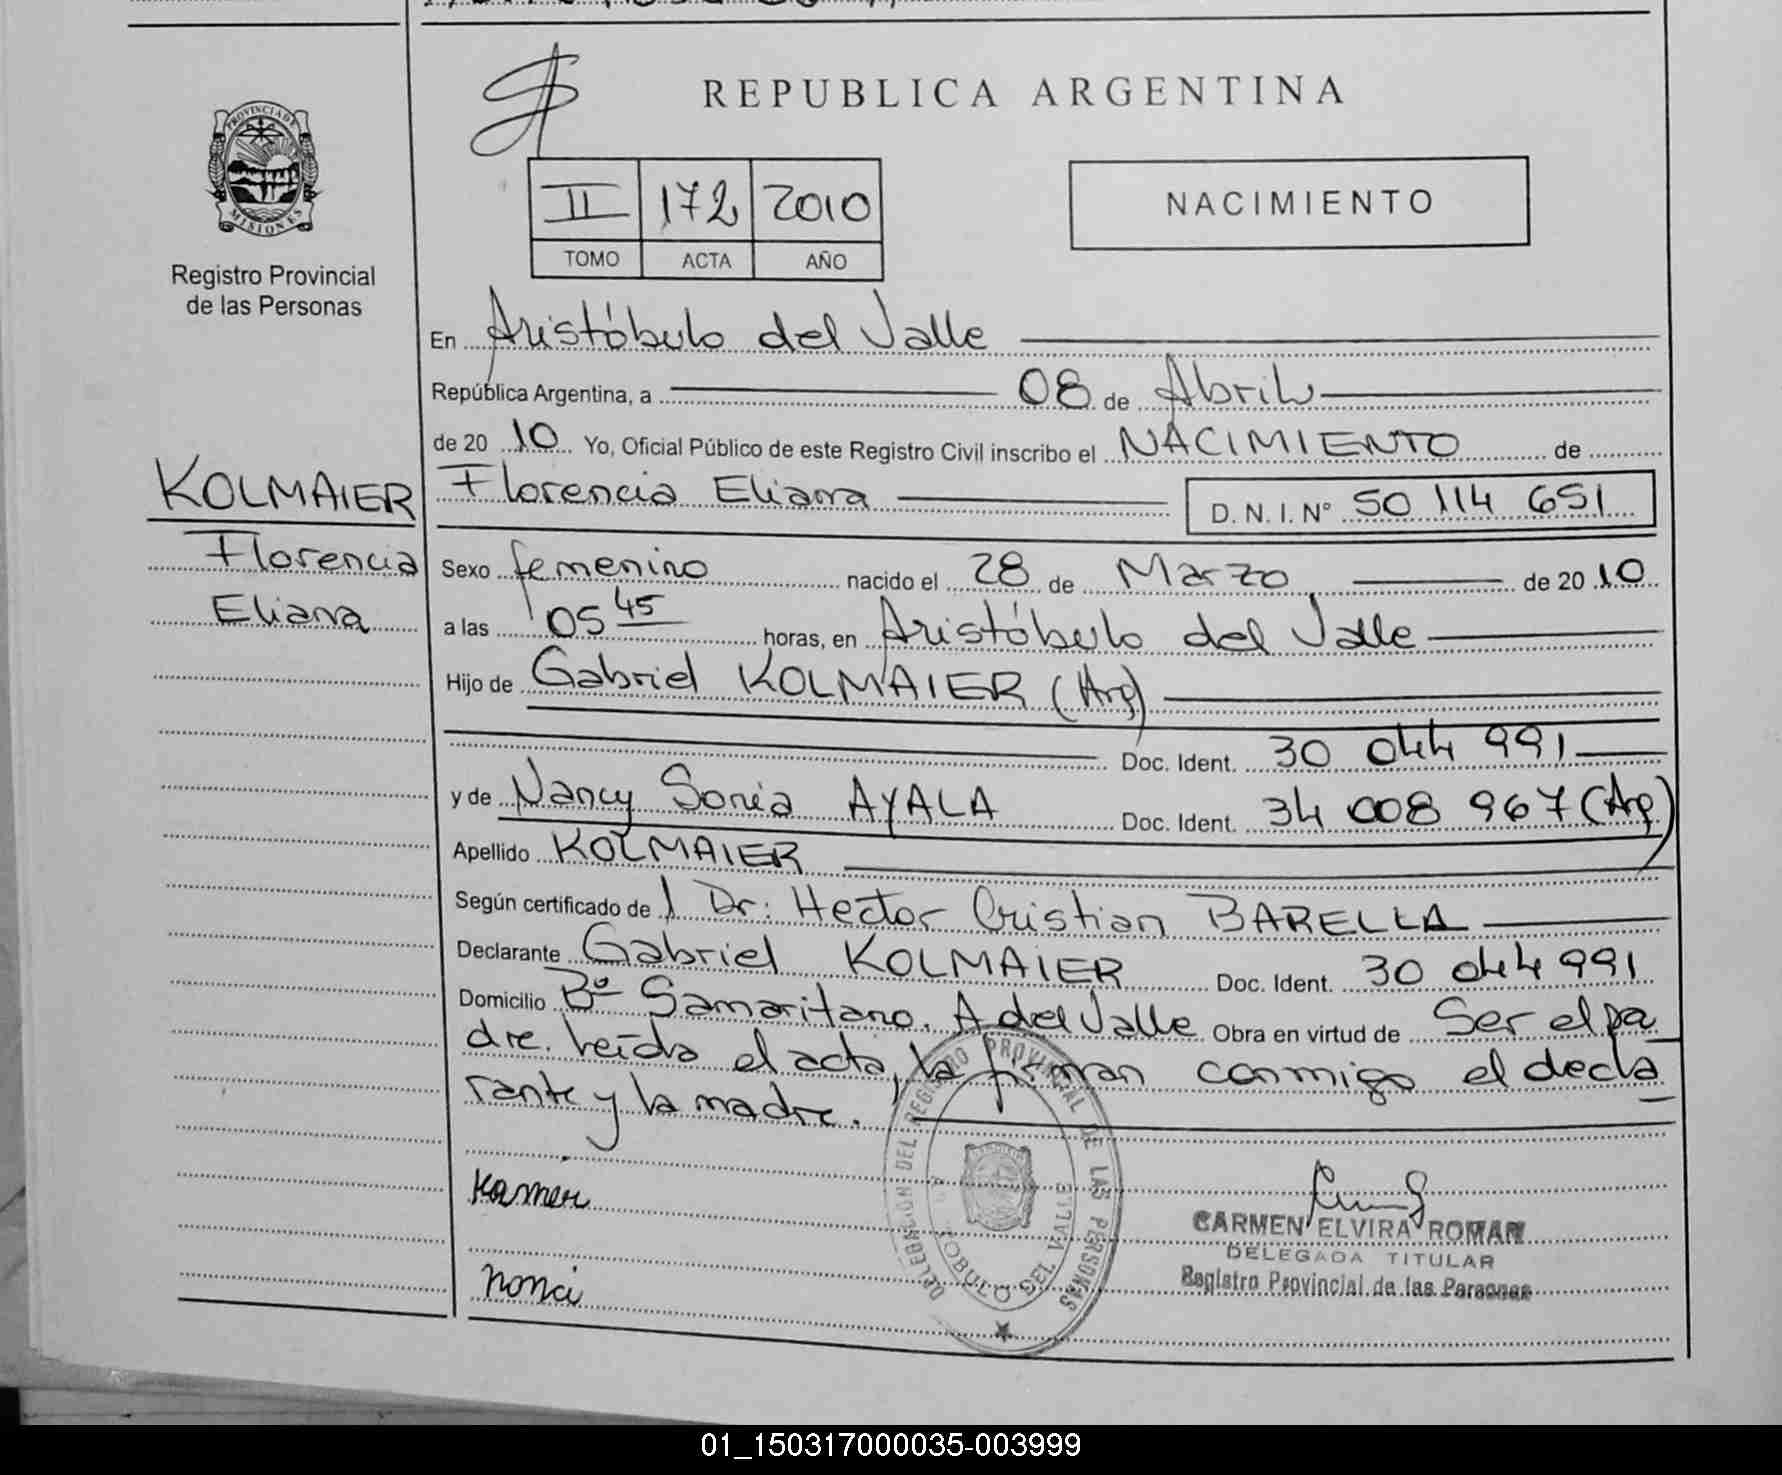 REPUBLICA ARGENTINA
PROVINCIA DE
MISIONES
Registro Provincial
de las Personas
II 172 2010
TOMO ACTA AÑO
NACIMIENTO
En Aristóbulo del Valle
República Argentina, a 08 de Abril
de 20 10 Yo, Oficial Público de este Registro Civil inscribo el NACIMIENTO de
KOLMAIER
Florencia
Eliana
Florencia Eliana D. N. I. Nº 50 114 651
Sexo femenino nacido el 28 de Marzo de 20 10
a las 05 45 horas, en Aristóbulo del Valle
Hijo de Gabriel KOLMAIER (Arg)
Doc. Ident. 30 044 991
y de Nancy Sonia AYALA Doc. Ident. 34 008 967 (Arg)
Apellido KOLMAIER
Según certificado de l Dr: Hector Cristian BARELLA
Declarante Gabriel KOLMAIER Doc. Ident. 30 044 991
Domicilio Bº Samaritano. A del Valle Obra en virtud de Ser el pa
dre. Leída el acta, la firman conmigo el decla
rante y la madre.
DELEGACION DEL REGISTRO PROVINCIAL DE LAS PERSONAS
DEL VALLE
nonci
CARMEN ELVIRA ROMAN
DELEGADA TITULAR
Registro Provincial de las Personas
01_150317000035-003999